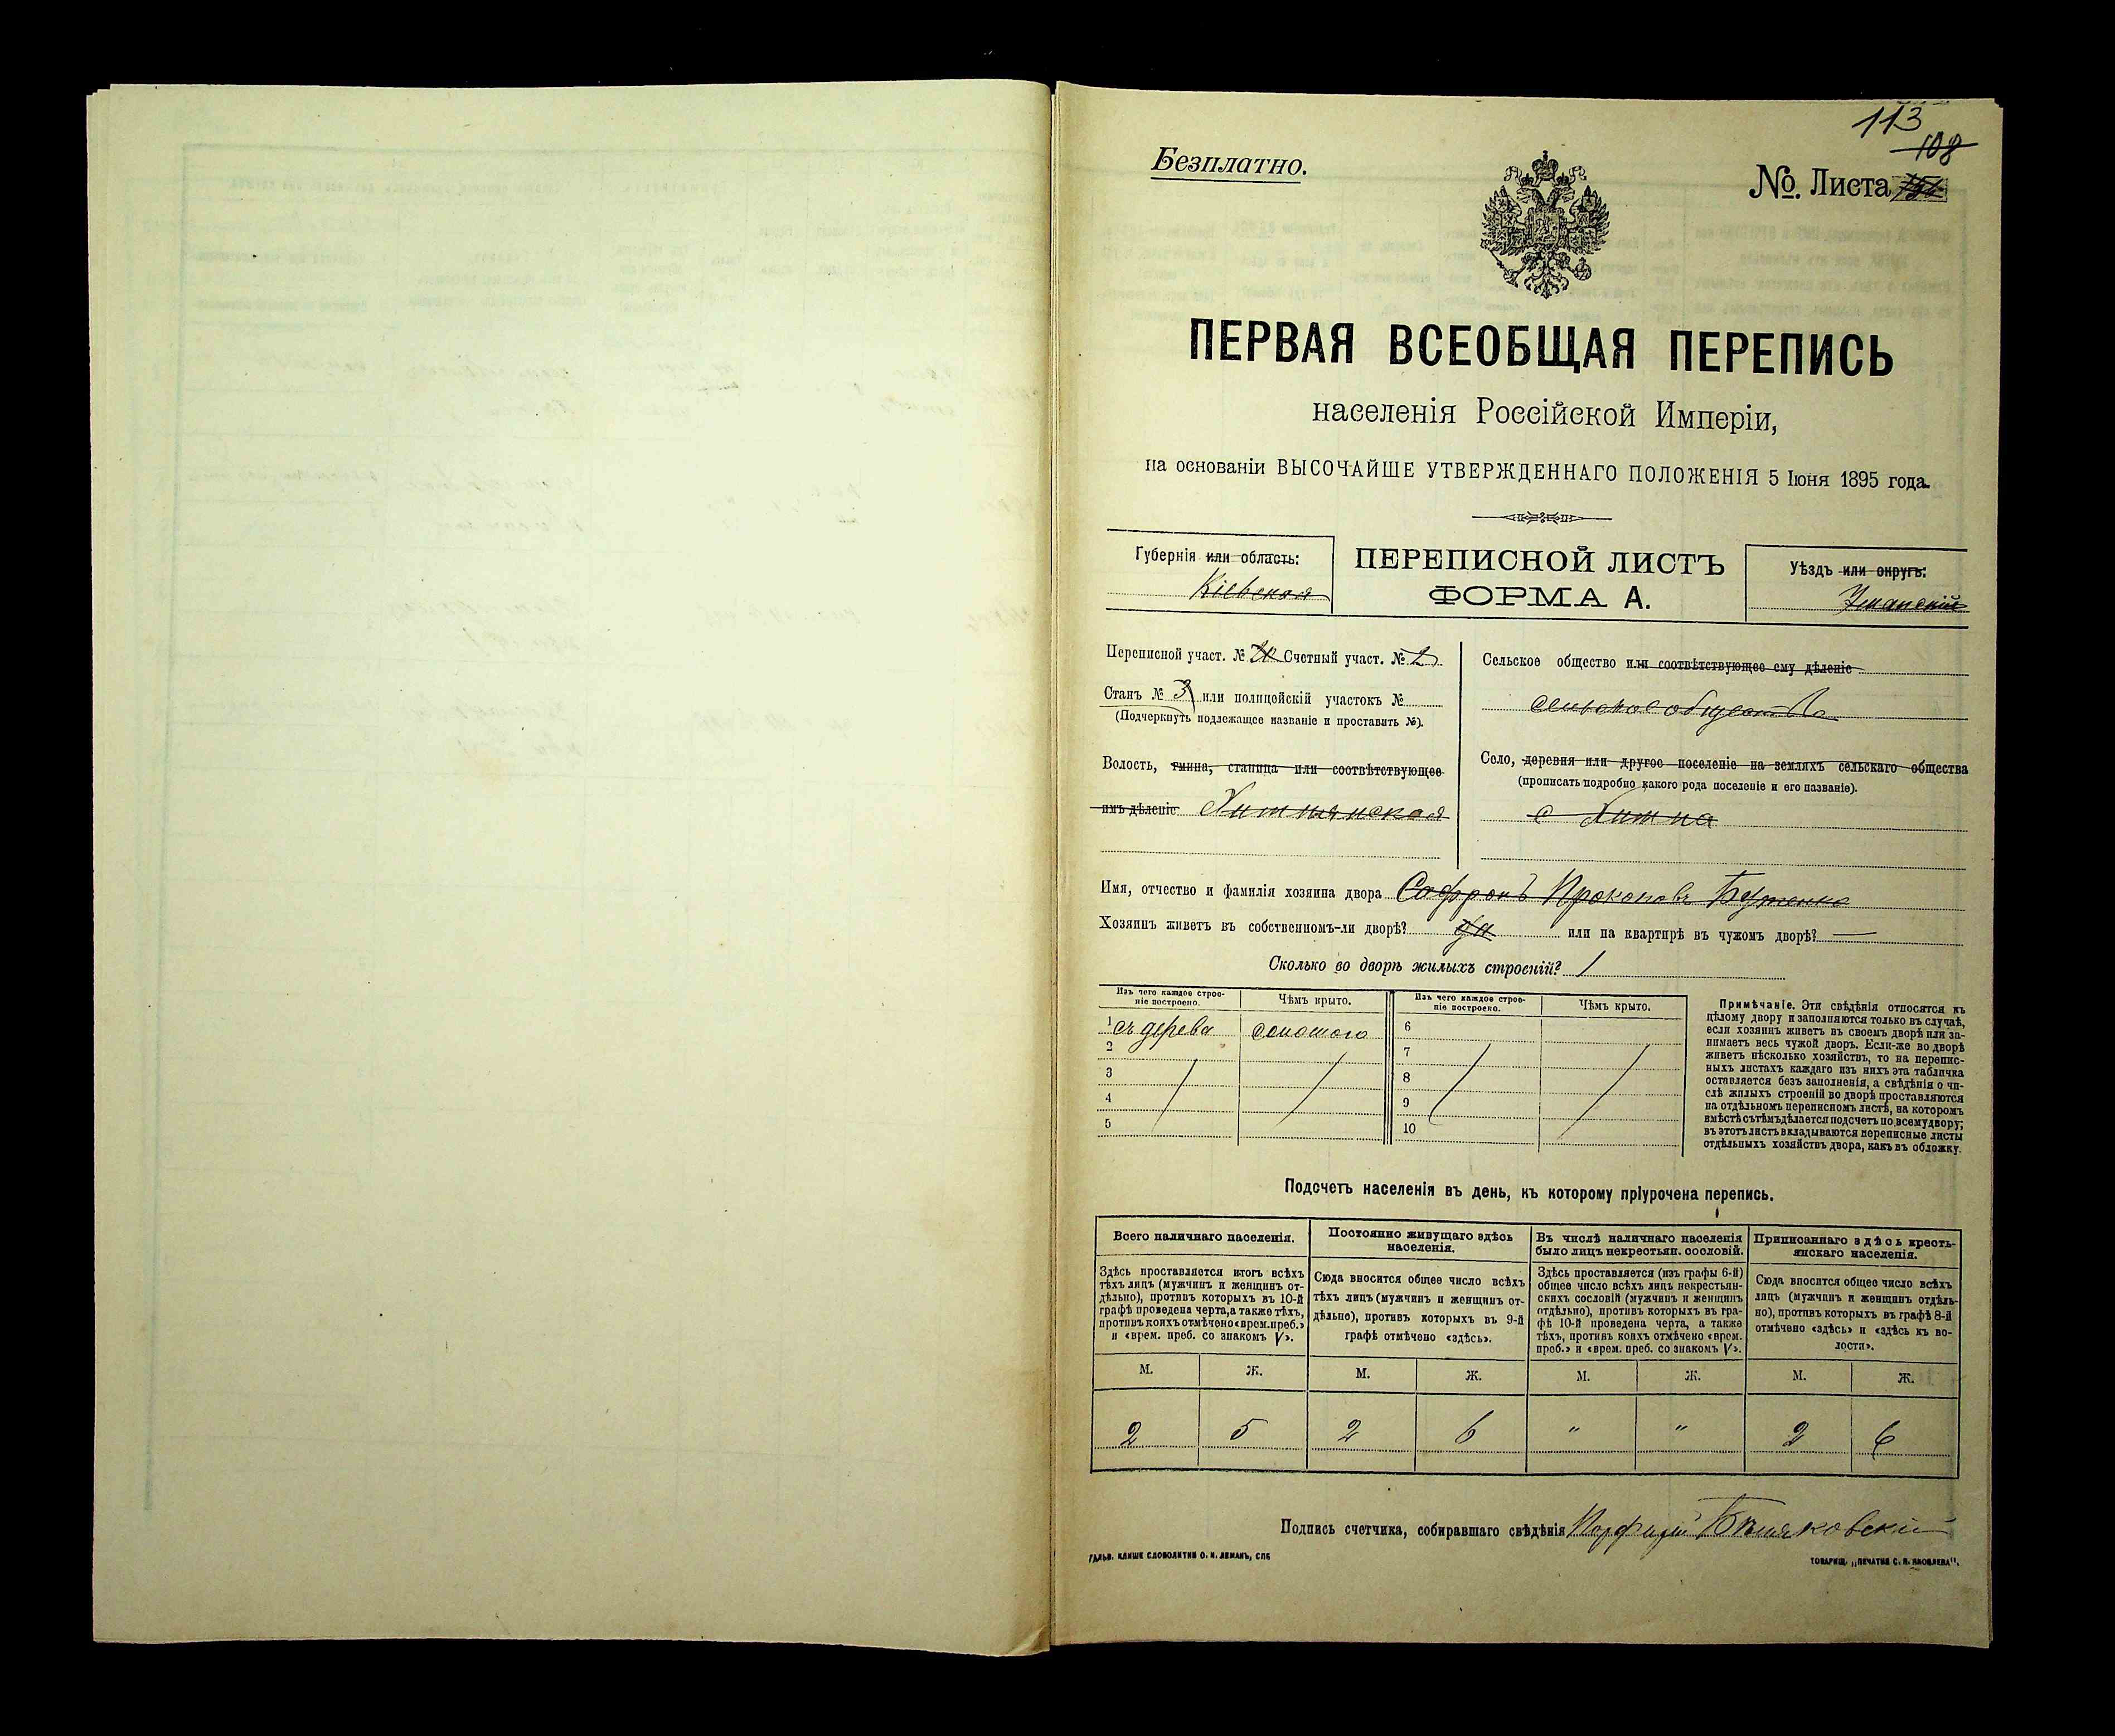 113
108
Безплатно.
№. Листа
ПЕРВАЯ ВСЕОБЩАЯ ПЕРЕПИСЬ
населенія Россійской Имперіи,
на основаніи ВЫСОЧАЙШЕ УТВЕРЖДЕННАГО ПОЛОЖЕНІЯ 5 Іюня 1895 года.
Губернія или область:
Кіевская
ПЕРЕПИСНОЙ ЛИСТЪ
ФОРМА А.
Уѣздъ или округъ:
Уманскій
Переписной участ. № Счетный участ. № 2
Станъ № 3 или полицейскій участокъ №
(Подчеркнуть подлежащее названіе и проставить №).
Волость, гмина, станица или соотвѣтствующее
имъ дѣленіе
Сельское общество или соотвѣтствующее ему дѣленіе
сельское общество
Село, деревня или другое поселеніе на земляхъ сельскаго общества
(прописать подробно какого рода поселеніе и его названіе).
с
Имя, отчество и фамилія хозяина двора Софронъ Прокоповъ
Хозяинъ живетъ въ собственномъ-ли дворѣ? да или на квартирѣ въ чужомъ дворѣ? —
Сколько во дворѣ жилыхъ строеній? 1
Изъ чего каждое строе-
ніе построено.
Чѣмъ крыто.
Изъ чего каждое строе-
ніе построено.
Чѣмъ крыто.
1 съ дерева соломою 6
2 7
3 8
4 9
5 10
Примѣчаніе. Эти свѣдѣнія относятся къ
цѣлому двору и заполняются только въ случаѣ,
если хозяинъ живетъ въ своемъ дворѣ или за-
нимаетъ весь чужой дворъ. Если-же во дворѣ
живетъ нѣсколько хозяйствъ, то на перепис-
ныхъ листахъ каждаго изъ нихъ эта табличка
оставляется безъ заполненія, а свѣдѣнія о чи-
слѣ жилыхъ строеній во дворѣ проставляются
на отдѣльномъ переписномъ листѣ, на которомъ
вмѣстѣ съ тѣмъ дѣлается подсчетъ по всему двору;
въ этотъ листъ вкладываются переписные листы
отдѣльныхъ хозяйствъ двора, какъ въ обложку.
Подсчетъ населенія въ день, къ которому пріурочена перепись.
Всего наличнаго населенія.
Здѣсь проставляется итогъ всѣхъ
тѣхъ лицъ (мужчинъ и женщинъ от-
дѣльно), противъ которыхъ въ 10-й
графѣ проведена черта, а также тѣхъ,
противъ коихъ отмѣчено «врем. преб.»
и «врем. преб. со знакомъ V».
Постоянно живущаго здѣсь
населенія.
Сюда вносится общее число всѣхъ
тѣхъ лицъ (мужчинъ и женщинъ от-
дѣльно), противъ которыхъ въ 9-й
графѣ отмѣчено «здѣсь».
Въ числѣ наличнаго населенія
было лицъ некрестьян. сословій.
Здѣсь проставляется (изъ графы 6-й)
общее число всѣхъ лицъ некрестьян-
скихъ сословій (мужчинъ и женщинъ
отдѣльно), противъ которыхъ въ гра-
фѣ 10-й проведена черта, а также
тѣхъ, противъ коихъ отмѣчено «врем.
преб.» и «врем. преб. со знакомъ V».
Приписаннаго здѣсь кресть-
янскаго населенія.
Сюда вносится общее число всѣхъ
лицъ (мужчинъ и женщинъ отдѣль-
но), противъ которыхъ въ графѣ 8-й
отмѣчено «здѣсь» и «здѣсь къ во-
лости».
М. Ж. М. Ж. М. Ж. М. Ж.
2 5 2 6 " " 2 6
Подпись счетчика, собиравшаго свѣдѣнія
ГАЛЬВ. КЛИШЕ СЛОВОЛИТНИ О. И. ЛЕМАНЪ, СПБ
ТОВАРИЩ. „ПЕЧАТНЯ С. П. ЯКОВЛЕВА".